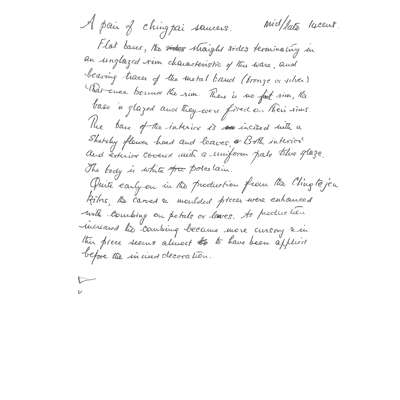 A pair of chingpai saucers. mid/late 12cent.
Flat base, the straight sides terminating in
an unglazed rim characteristic of this ware, and
bearing traces of the metal band (bronze or silver)
that once bound the rim. There is no foot rim, the
base is glazed and they were fired on their rims.
The base of the interior is incised with a
sketchy flower head and leaves, Both interior
and exterior covered with a uniform pale blue glaze.
The body is white porcelain.
Quite early on in the production from the Chingtejen
kilns, the carved & moulded pieces were enhanced
with combing on petals or leaves. As production
increased the combing became more cursory & in
this piece seems almost to have been applied
before the incised decoration.